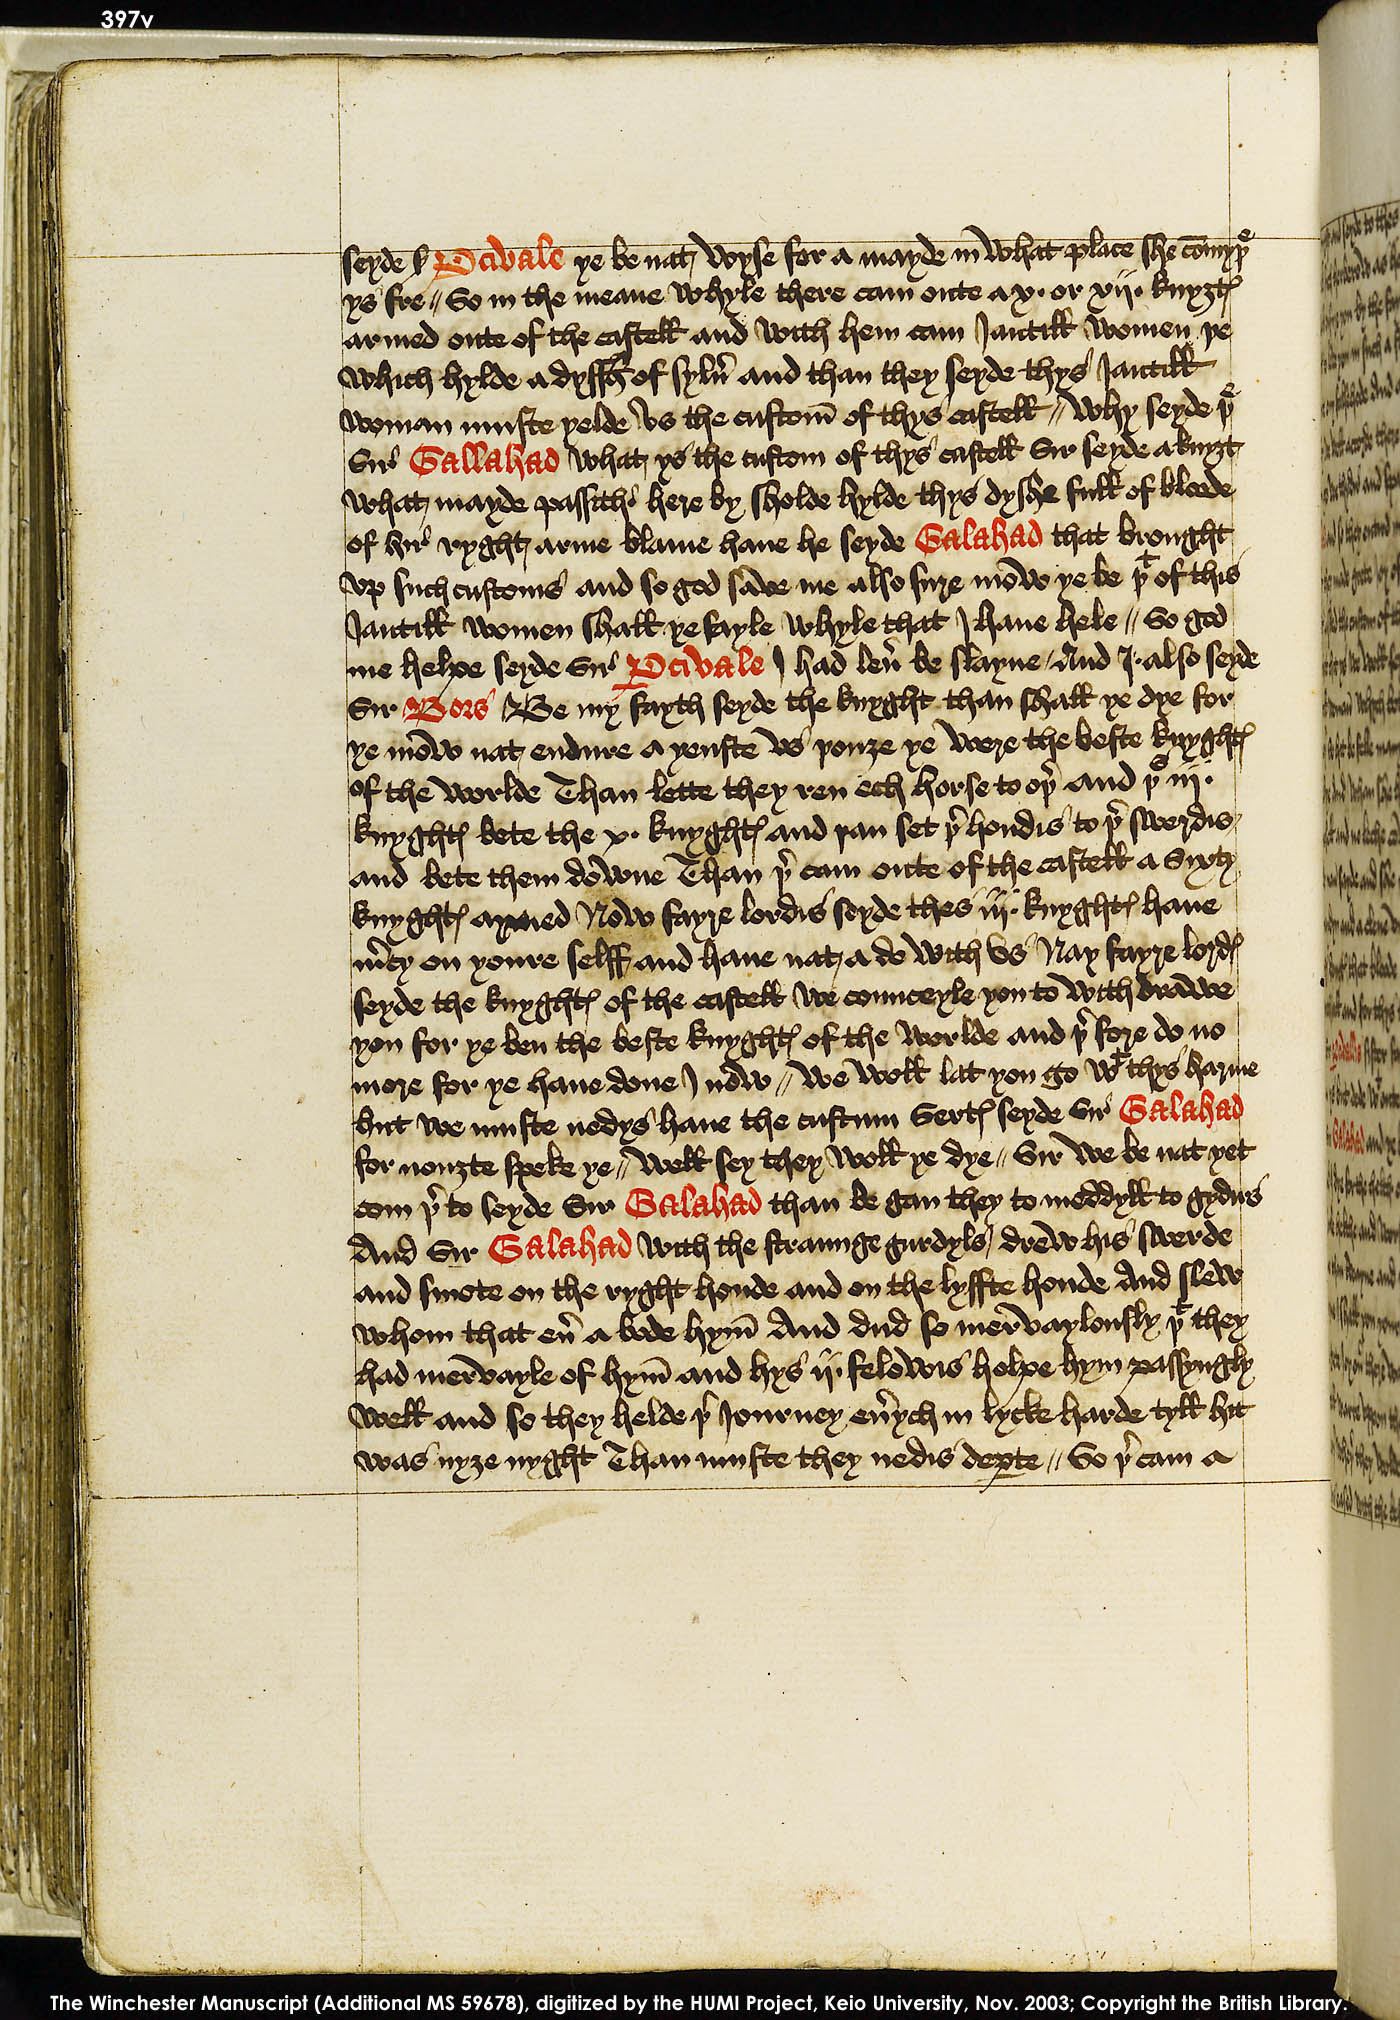 397v
seyde S Pcivale ye be nat wyse for a mayde in what place she comyþ
ys fre // So in the meane whyle there cam oute a x. or xij. knyȝtꝭ
armed oute of the castell and with hem cam Jantill women ye
which hylde a dyssh of sylũ and than they seyde thys Jantill
woman muste yelde us the custom̄ of thys castell // Why seyde
Sir Gallahad what ys the custom of thys castell Sir seyde a knyȝt
what mayde passith here by sholde hylde thys dyshe full of bloode
of hir ryght arme blame have he seyde Galahad that brought
up such customs and so god save me also sure mow ye be þt of this
Jantill women shall ye fayle whyle that I have hele // So god
me helpe seyde Sir Pcivale I had leũ be slayne / And I. also seyde
Sir Bors / Be my fayth seyde the knyght than shall ye dye for
ye mow nat endure ayenste us youȝe ye were the beste knyghtꝭ
of the worlde Than lette they ren ech horse to oþ and þs iij.
knyghtꝭ bete the x. knyghtꝭ and þan set þ hondis to þ swerdis
and bete them downe Than þ cam oute of the castell a Sixty
knyghtꝭ armed Now fayre lordis seyde thes iij. knyghtꝭ have
mcy on youre selff and have nat ado with us Nay fayre lordꝭ
seyde the knyghtꝭ of the castell we counceyle you to withdrawe
you for ye ben the beste knyghtꝭ of the worlde and þ fore do no
more for ye have done I now // we woll lat you go wt thys harme
but we muste nedys have the custum Sertꝭ seyde Sir Galahad
for nouȝte speke ye // Well sey they woll ye dye // Sir we be nat yet
com þ to seyde Sir Galahad than be gan they to meddyll to gydirs
And Sir Galahad with the straunge gurdyls drew his swerde
and smote on the ryght honde and on the lyffte honde And slew
whom that eũ a bode hym̄ And dud so mervaylously þt they
had mervayle of hym̄ and hys ij. felowis holpe hym passyngly
well and so they helde þ Journey eũych in lycke harde tyll hit
was nyȝe nyght Than muste they nedis depte // So þ cam a
The Winchester Manuscript (Additional MS 59678), digitized by the HUMI Project, Keio University, Nov. 2003; Copyright the British Library.